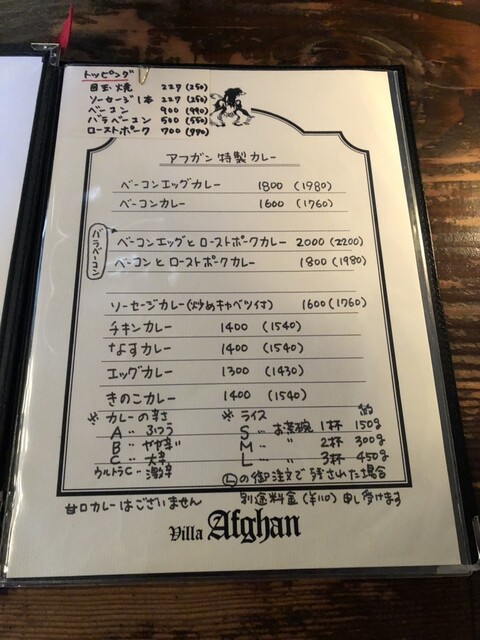 トッピング
目玉焼 227(250)
ソーセージ1本 227(250)
ベーコン 900(990)
バラベーコン 500(550)
ローストポーク 700(770)
アフガン特製カレー
ベーコンエッグカレー 1800(1980)
ベーコンカレー 1600(1760)
バラベーコン
ベーコンエッグとローストポークカレー 2000(2200)
ベーコンとローストポークカレー 1800(1980)
ソーセージカレー(炒めキャベツ付) 1600(1760)
チキンカレー 1400(1540)
なすカレー 1400(1540)
エッグカレー 1300(1430)
きのこカレー 1400(1540)
※カレーの辛さ
A‥ふつう
B‥やや辛い
C‥大辛
ウルトラC‥激辛
※ライス 約
S‥お茶碗1杯 150g
M‥〃 2杯 300g
L‥〃 3杯 450g
Ⓛの御注文で残された場合
別途料金(¥110)申し受けます
甘口カレーはございません
Villa Afghan